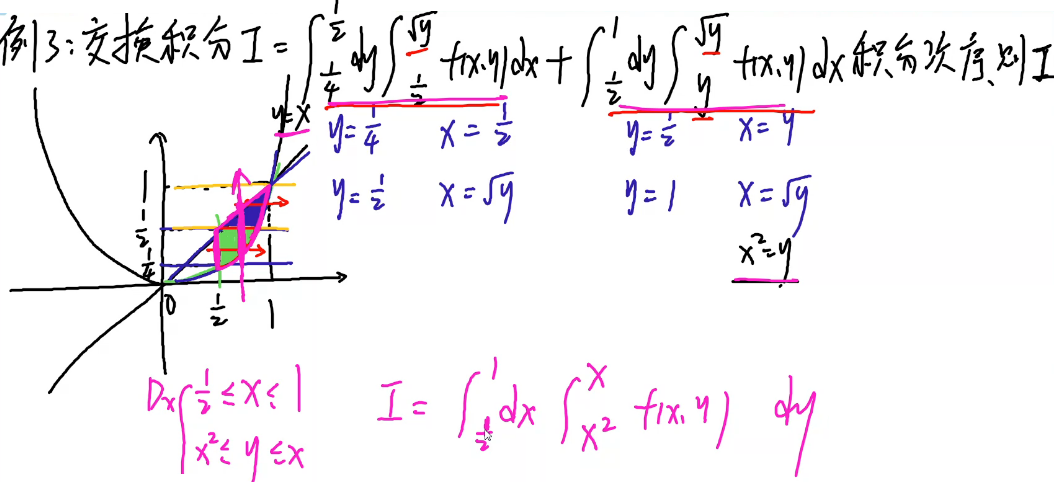 例3:交换积分I=∫_{1/4}^{1/2}dy∫_{1/2}^{√y}f(x,y)dx+∫_{1/2}^{1}dy∫_{y}^{√y}f(x,y)dx积分次序,则I
y=x
y=1/4 x=1/2 y=1/2 x=y
y=1/2 x=√y y=1 x=√y
x²=y
1
1/2
1/4
0 1/2 1
Dx{1/2≤x≤1
x²≤y≤x
I=∫_{1/2}^{1}dx∫_{x²}^{x}f(x,y) dy